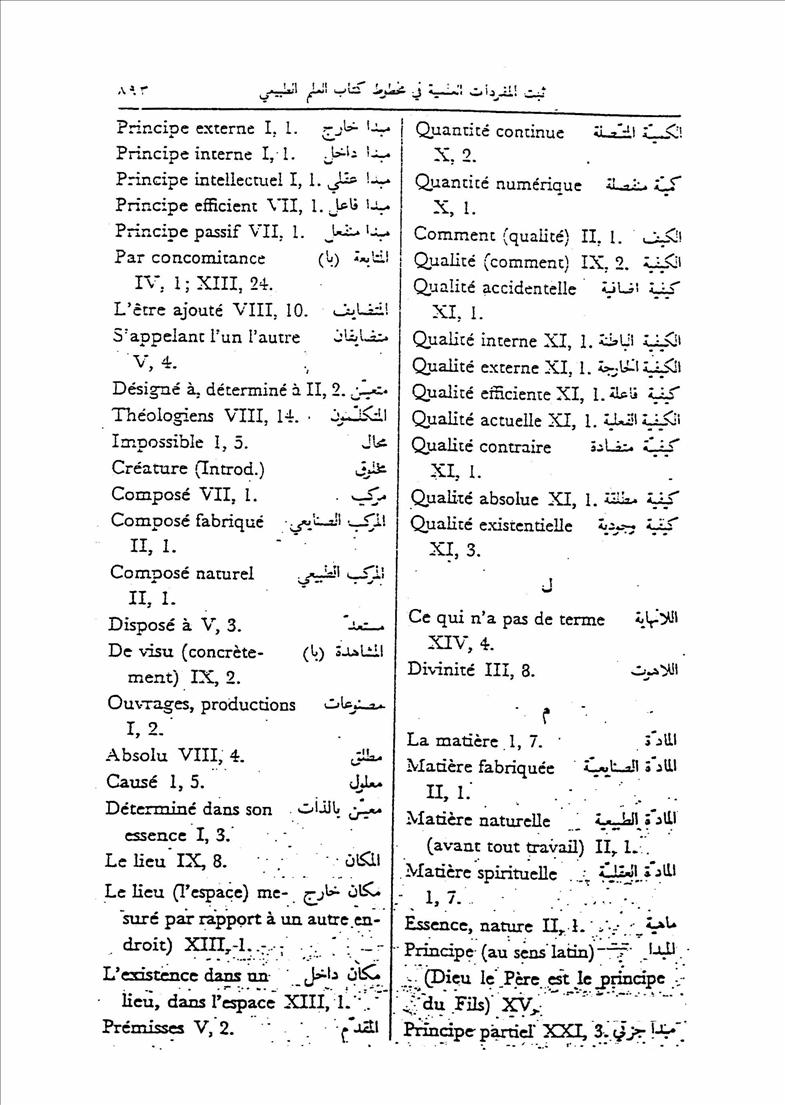 ثبت المفردات العلمية في مخطوط كتاب العلم الطبيعي ٨٩٣
Quantité continue الكميّة المتّصلة
X, 2.
Quantité numérique كميّة منفصلة
X, 1.
Comment (qualité) II, 1. الكيف
Qualité (comment) IX, 2. الكيفية
Qualité accidentelle كيفية اضافية
XI, 1.
Qualité interne XI, 1. الكيفية الباطنة
Qualité externe XI, 1. الكيفية الخارجة
Qualité efficiente XI, 1. كيفية فاعلة
Qualité actuelle XI, 1. الكيفية الفعلية
Qualité contraire كيفيّة متضادة
XI, 1.
Qualité absolue XI, 1. كيفية مطلقة
Qualité existentielle كيفية وجودية
XI, 3.
ل
Ce qui n'a pas de terme اللانهاية
XIV, 4.
Divinité III, 8. اللاهوت
م
La matière 1, 7. المادّة
Matière fabriquée المادّة الصنايعيّة
II, 1.
Matière naturelle المادّة الطبيعية
(avant tout travail) II, 1.
Matière spirituelle المادّة العقليّة
1, 7.
Essence, nature II, 1. ماهية
Principe (au sens latin) المبدا
(Dieu le Père est le principe
du Fils) XV,
Principe partiel XXI, 3. مبدا جزئي
Principe externe I, 1. مبدا خارج
Principe interne I, 1. مبدا داخل
Principe intellectuel I, 1. مبدا عقلي
Principe efficient VII, 1. مبدا فاعل
Principe passif VII, 1. مبدا منفعل
Par concomitance المتابعة (با)
IV, 1; XIII, 24.
L'être ajouté VIII, 10. المتضايف
S'appelant l'un l'autre متضايفان
V, 4.
Désigné à, déterminé à II, 2. متعيّن
Théologiens VIII, 14. المتكلّمون
Impossible I, 5. محال
Créature (Introd.) مخلوق
Composé VII, 1. مركب
Composé fabriqué المركب الصنايعي
II, 1.
Composé naturel المركب الطبيعي
II, 1.
Disposé à V, 3. مستعدّ
De visu (concrète- المشاهدة (با)
ment) IX, 2.
Ouvrages, productions مصنوعات
I, 2.
Absolu VIII, 4. مطلق
Causé 1, 5. معلول
Déterminé dans son معيّن بالذات
essence I, 3.
Le lieu IX, 8. المكان
Le lieu (l'espace) me- مكان خارج
suré par rapport à un autre en-
droit) XIII, 1.
L'existence dans un مكان داخل
lieu, dans l'espace XIII, 1.
Prémisses V, 2. المقدّم